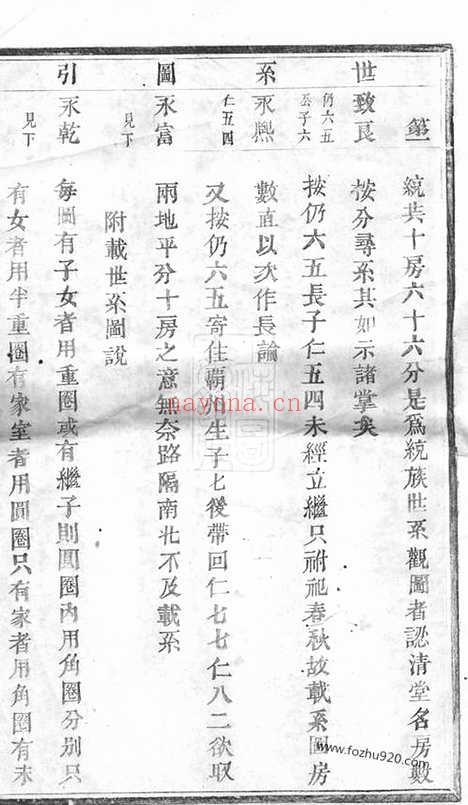 世系圖引
第一
致良
仍六五
公子六
永熙
仁五四
永富
見下
永乾
見下
統共十房六十六分是為統族世系觀圖者認清堂名房數
按分尋系其如示諸掌矣
按仍六五長子仁五四未經立繼只祔祀春秋故載系圖房
數直以次作長論
又按仍六五寄住霸州生子七後帶回仁七七仁八二欲取
兩地平分十房之意無奈路隔南北不及載系
附載世系圖說
每圖有子女者用重圈或有繼子則圓圈內用角圈分別只
有女者用半重圈有家室者用圓圈只有家者用角圈有未
mayona.cn
www.fozhu920.com